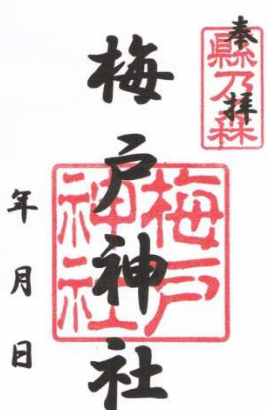 奉拝
縣乃森
梅戸神社
梅戸
神社
年月日